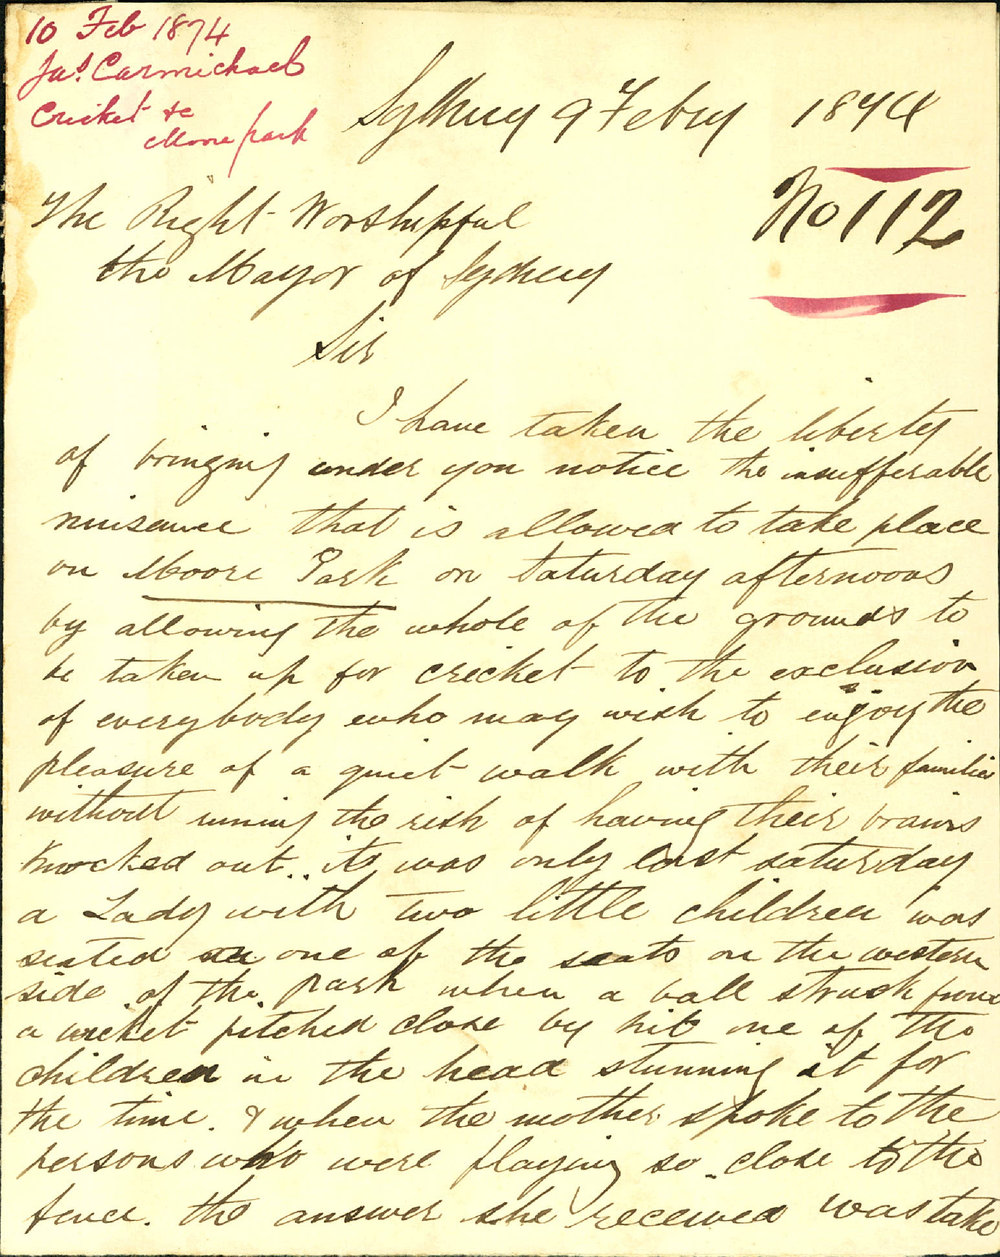 10 Feb 1874
Jas. Carmichael
Cricket &c
Moore park
Sydney 9 Febry 1874
No 112
The Right Worshipful
the Mayor of Sydney
Sir
I have taken the liberty
of bringing under you notice the insufferable
nuisance that is allowed to take place
on Moore Park on Saturday afternoons
by allowing the whole of the grounds to
be taken up for cricket to the exclusion
of everybody who may wish to enjoy the
pleasure of a quiet walk with their families
without runing the risk of having their brains
knocked out. it was only last saturday
a Lady with two little children was
seated on one of the seats on the western
side of the park when a ball struck from
a wicket pitched close by hit one of the
children in the head stunning it for
the time. & when the mother spoke to the
persons who were playing so close to the
fence. the answer she received was take